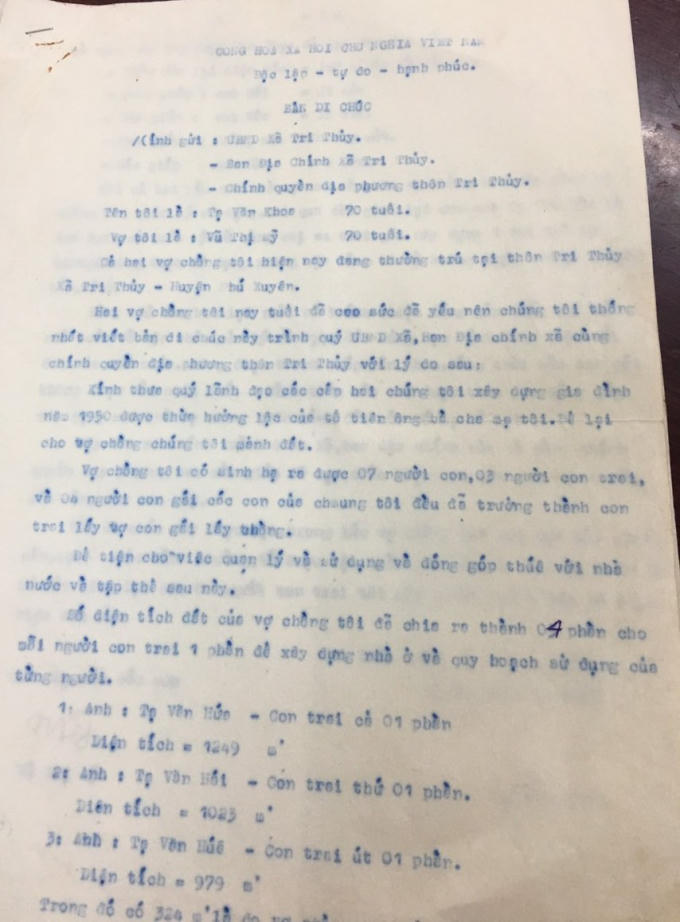 CONG HOA XA HOI CHU NGHIA VIET NAM
Độc lộc - tự do - hạnh phúc.
BẢN DI CHÚC
/(ính gửi : UBND Xã Tri Thủy.
- Ban Địa Chính Xã Tri Thủy.
- Chính quyền địa phương thôn Tri Thủy.
Tên tôi là : Tạ Văn Khoa 70 tuổi.
Vợ tôi là : Vũ Thị Mỹ 70 tuổi.
Cả hai vợ chồng tôi hiện nay đang thường trú tại thôn Tri Thủy
Xã Tri Thủy - Huyện Phú Xuyên.
Hai vợ chồng tôi nay tuổi đã cao sức đã yếu nên chúng tôi thống
nhất viết bản di chúc này trình quý UBND Xã, Ban Địa chính xã cùng
chính quyền địa phương thôn Tri Thủy với lý do sau:
Kính thưa quý lãnh đạo các cấp hai chúng tôi xây dựng gia đình
năm 1950 được thừa hưởng lộc của tổ tiên ông bà cha mẹ tôi. Để lại
cho vợ chồng chúng tôi mảnh đất.
Vợ chồng tôi có sinh hạ ra được 07 người con, 03 người con trai,
và 04 người con gái các con của chaung tôi đều đã trưởng thành con
trai lấy vợ con gái lấy chồng.
Để tiện cho việc quản lý và sử dụng và đóng góp thuế với nhà
nước và tập thể sau này.
Số diện tích đất của vợ chồng tôi đã chia ra thành 04 phần cho
mỗi người con trai 1 phần để xây dựng nhà ở và quy hoạch sử dụng của
từng người.
1: Anh : Tạ Văn - Con trai cả 01 phần
Diện tích = 1249 m²
2: Anh : Tạ Văn - Con trai thứ 01 phần.
Diện tích = 1023 m²
3: Anh : Tạ Văn - Con trai út 01 phần.
Diện tích = 979 m²
Trong đó có 324 m² là do